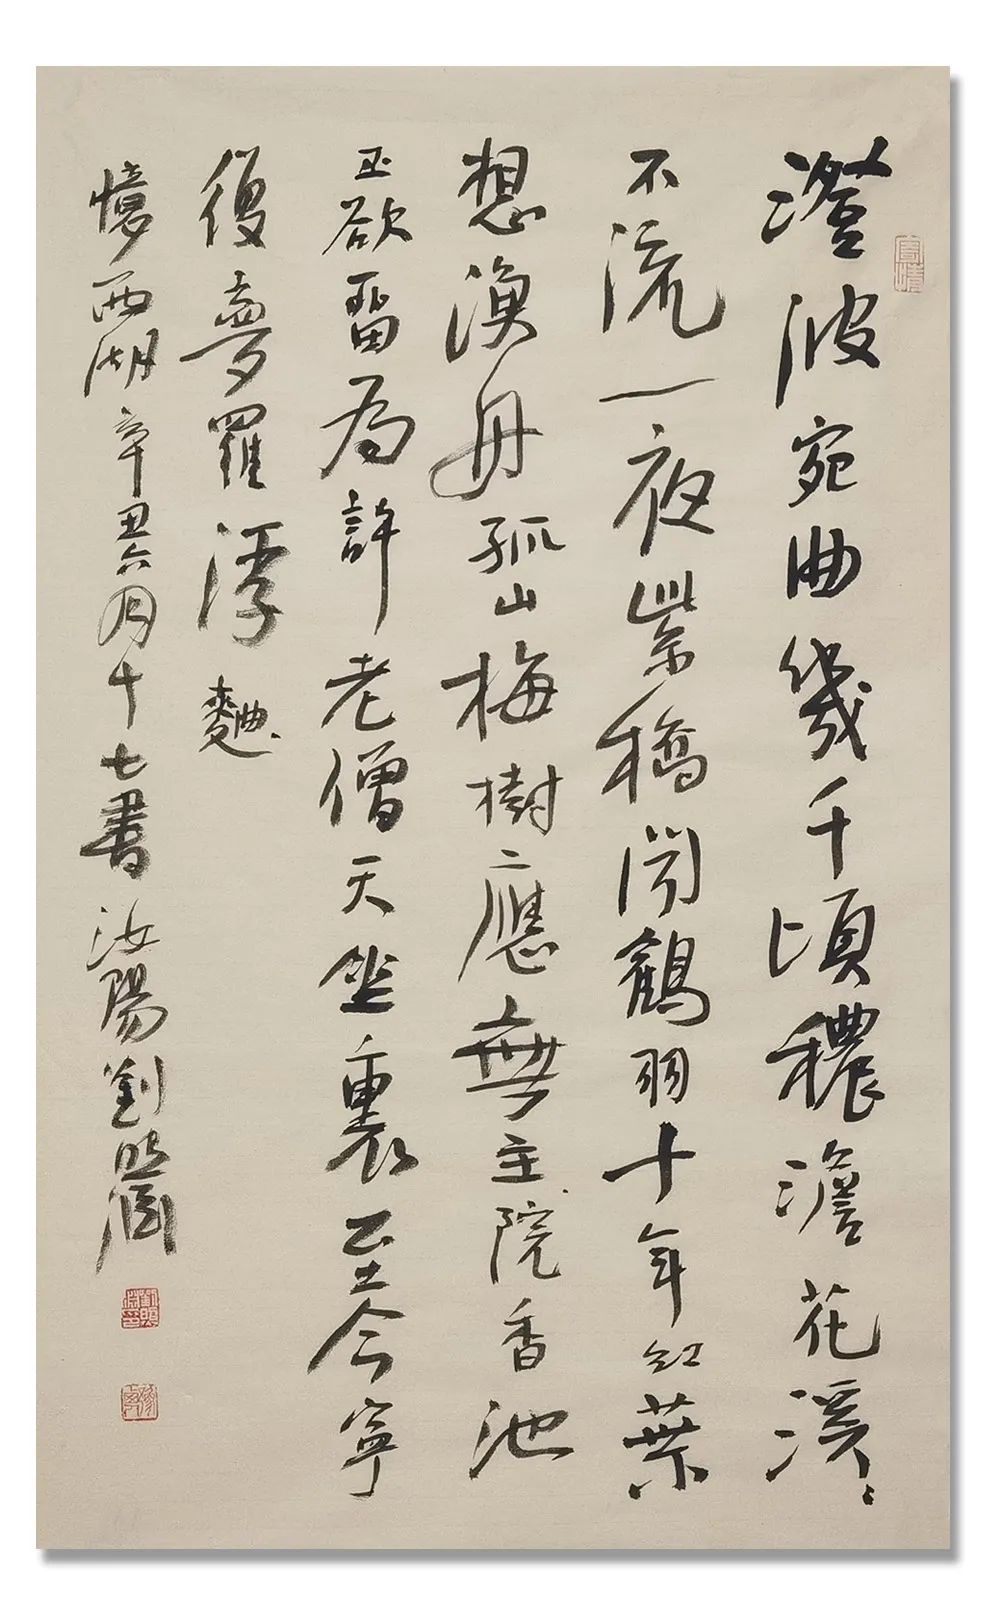 澄波宛曲幾千頃穠澹花溪〻
不流一夜紫橋聞鶴羽十年紅葉
想漁舟孤山梅樹應無主院香池
欲留為許老僧天坐裏至今寧
復夢羅浮 麯
憶西湖辛丑六月十七書汝陽劉